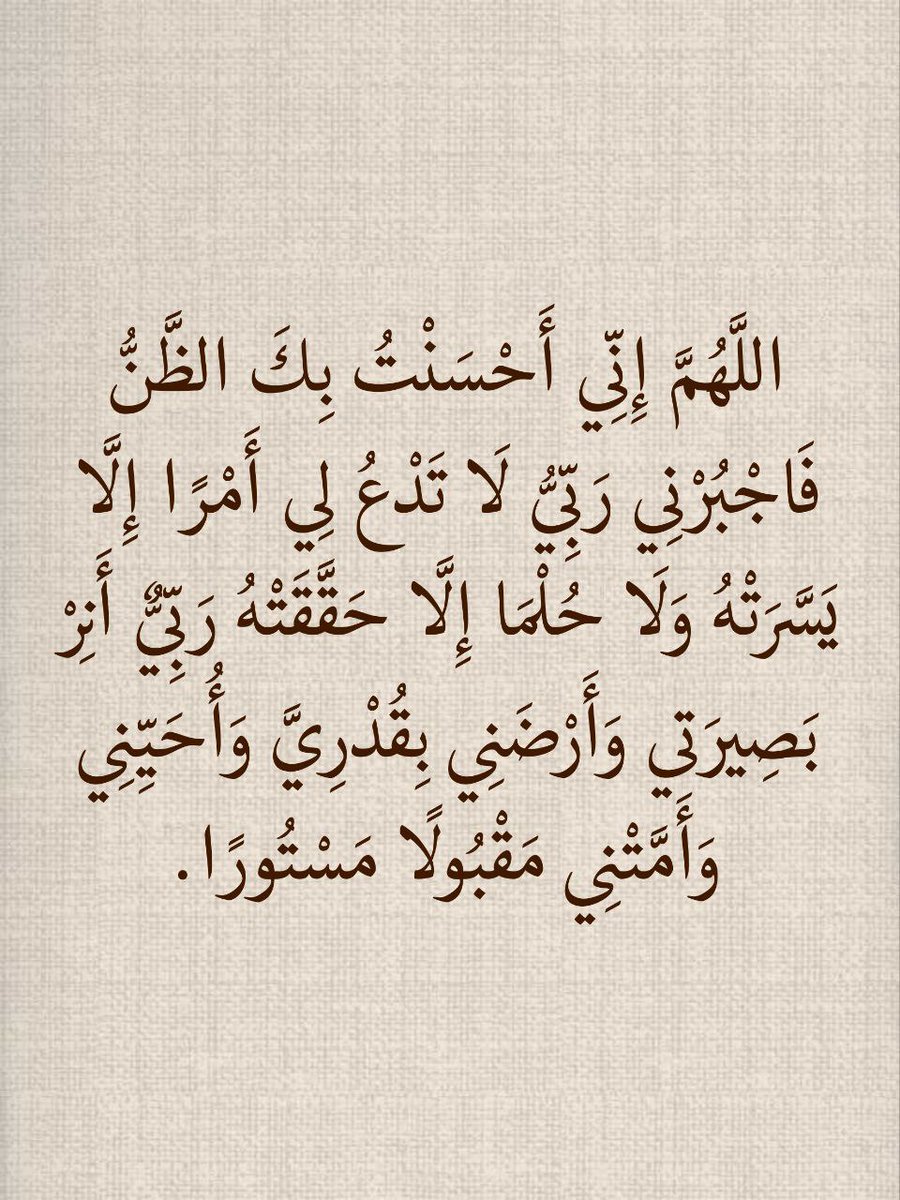 اللَّهُمَّ إِنِّي أَحْسَنْتُ بِكَ الظَّنُّ
فَاجْبُرْنِي رَبِّيُّ لَا تَدْعُ لِي أَمْرًا إِلَّا
يَسَّرَتْهُ وَلَا حُلْمَا إِلَّا حَقَّقَتْهُ رَبِّيٌّ أَنِرْ
بَصِيرَتي وَأَرْضَنِي بِقُدْرِيَّ وَأُحَيِّنِي
وَأَمَّتْنِي مَقْبُولًا مَسْتُورًا.